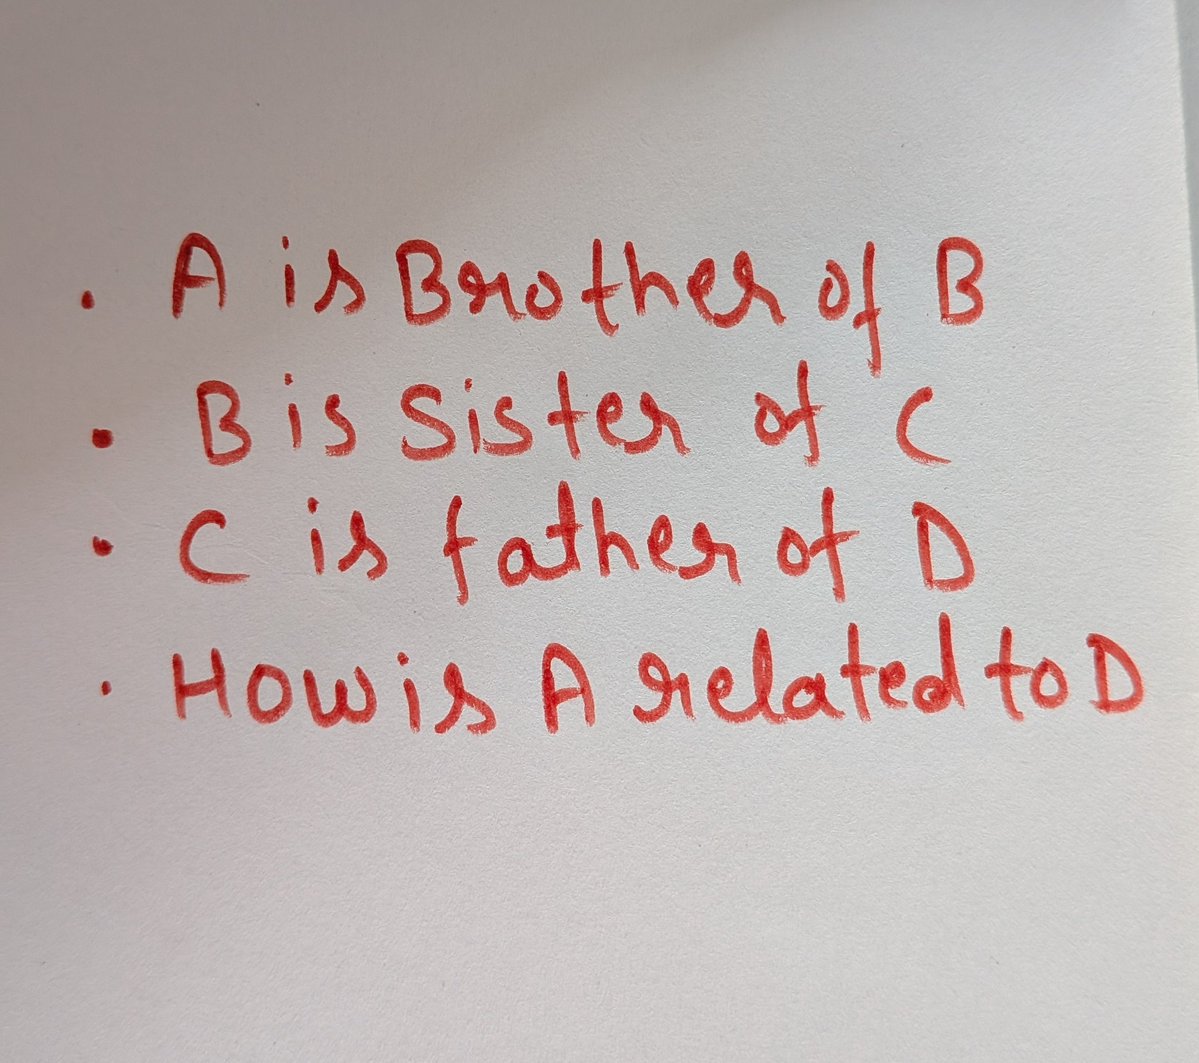 • A is Brother of B
• B is Sister of C
• C is father of D
• How is A related to D